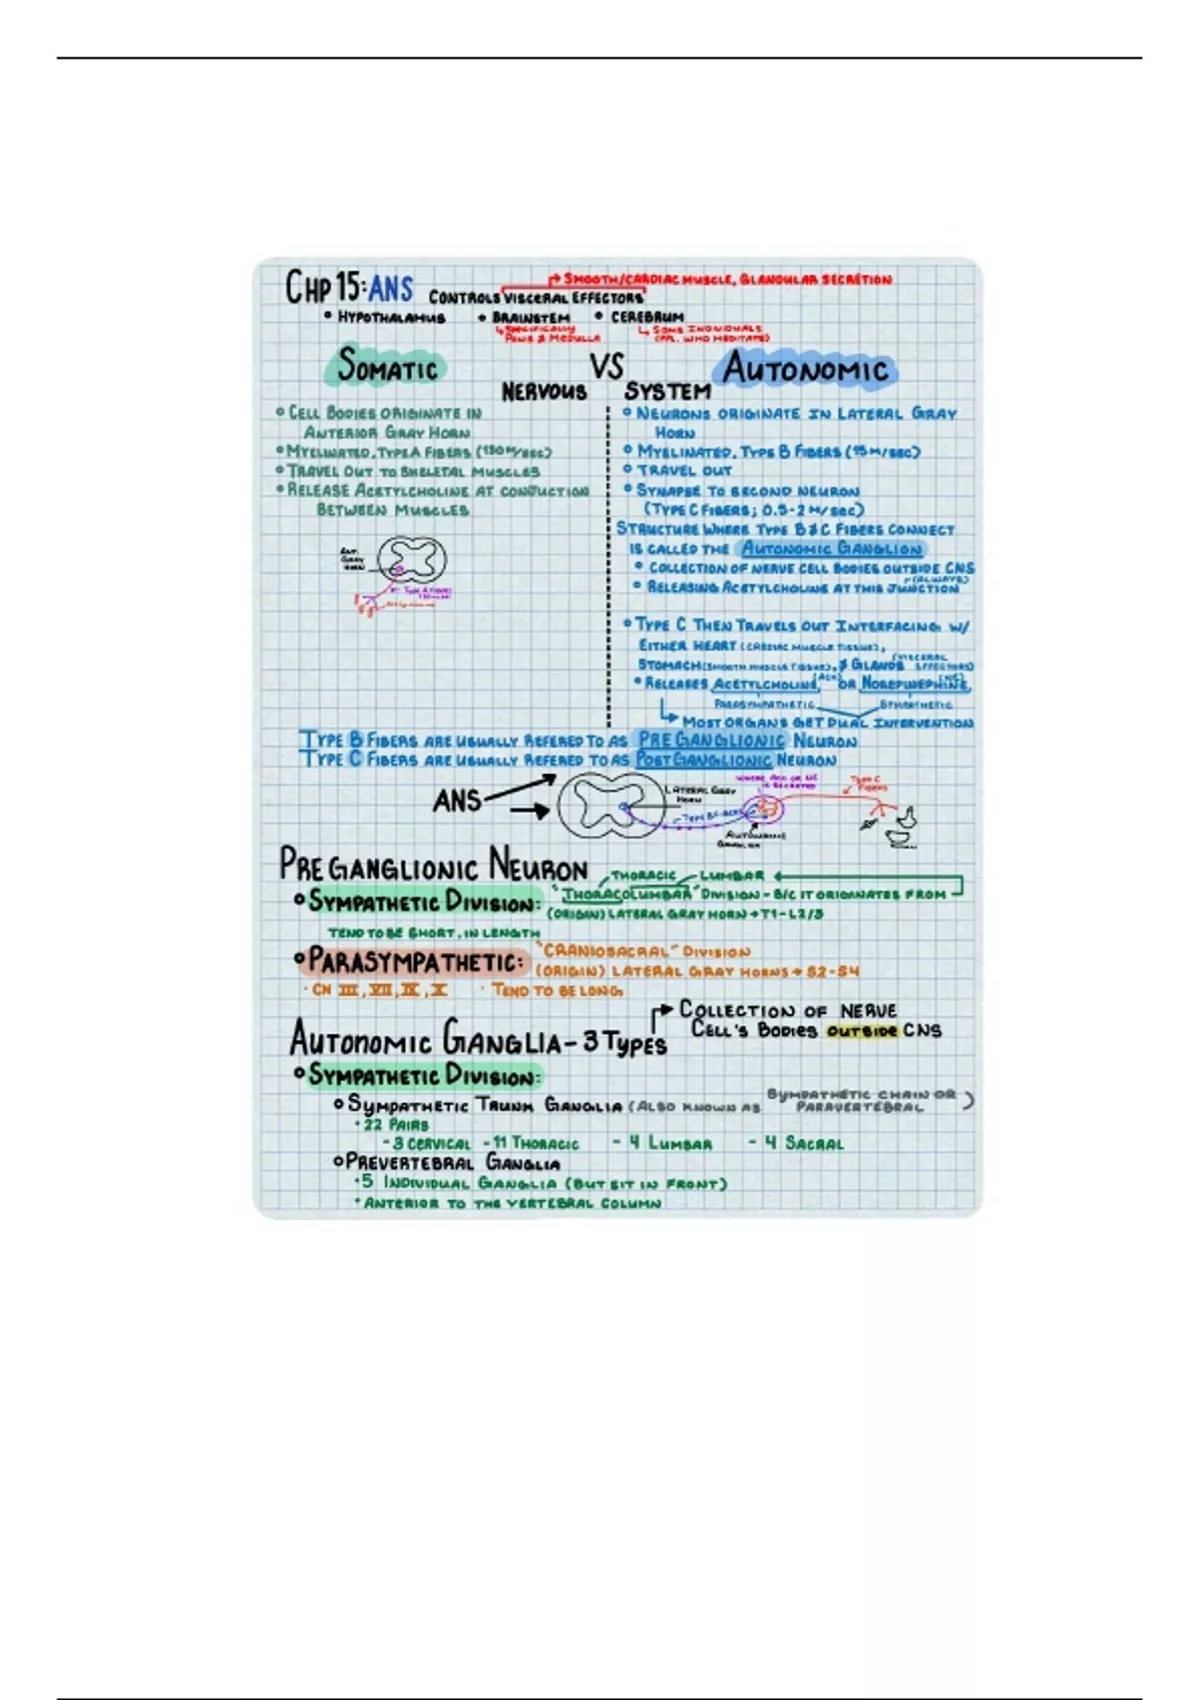 CHP 15: ANS
→ SMOOTH/CARDIAC MUSCLE, GLANDULAR SECRETION
CONTROLS VISCERAL EFFECTORS
• HYPOTHALAMUS • BRAINSTEM • CEREBRUM
↳ SPECIFICALLY PONS & MEDULLA
↳ SOME INDIVIDUALS
WHO MEDITATE)
SOMATIC VS AUTONOMIC
NERVOUS SYSTEM
• CELL BODIES ORIGINATE IN
ANTERIOR GRAY HORN
• MYELINATED, TYPE A FIBERS (130 M/SEC)
• TRAVEL OUT TO SKELETAL MUSCLES
• RELEASE ACETYLCHOLINE AT CONJUCTION
BETWEEN MUSCLES
ANT.
GRAY
HORN
TYPE A FIBERS
• NEURONS ORIGINATE IN LATERAL GRAY
HORN
• MYELINATED, TYPE B FIBERS (15 M/SEC)
• TRAVEL OUT
• SYNAPSE TO SECOND NEURON
(TYPE C FIBERS; 0.5-2 M/SEC)
STRUCTURE WHERE TYPE B & C FIBERS CONNECT
IS CALLED THE AUTONOMIC GANGLION
• COLLECTION OF NERVE CELL BODIES OUTSIDE CNS
• RELEASING ACETYLCHOLINE AT THIS JUNCTION (ALWAYS)
• TYPE C THEN TRAVELS OUT INTERFACING W/
EITHER HEART (CARDIAC MUSCLE TISSUE),
STOMACH (SMOOTH MUSCLE TISSUE), & GLANDS (VISCERAL EFFECTORS)
• RELEASES ACETYLCHOLINE (ACH) OR NOREPINEPHINE (NE)
PARASYMPATHETIC SYMPATHETIC
↳ MOST ORGANS GET DUAL INTERVENTION
TYPE B FIBERS ARE USUALLY REFERED TO AS PREGANGLIONIC NEURON
TYPE C FIBERS ARE USUALLY REFERED TO AS POSTGANGLIONIC NEURON
ANS
LATERAL GRAY
HORN
TYPE B FIBERS
WHERE ACH OR NE
IS SECRETED
AUTONOMIC
GANGLION
TYPE C
FIBERS
PREGANGLIONIC NEURON
THORACIC LUMBAR
• SYMPATHETIC DIVISION: "THORACOLUMBAR" DIVISION - B/C IT ORIGINATES FROM
(ORIGIN) LATERAL GRAY HORN → T1-L2/3
TEND TO BE SHORT, IN LENGTH
• PARASYMPATHETIC: "CRANIOSACRAL" DIVISION
(ORIGIN) LATERAL GRAY HORNS → S2-S4
• CN III, VII, IX, X • TEND TO BE LONG
AUTONOMIC GANGLIA - 3 TYPES
→ COLLECTION OF NERVE
CELL'S BODIES OUTSIDE CNS
• SYMPATHETIC DIVISION:
○ SYMPATHETIC TRUNK GANGLIA (ALSO KNOWN AS SYMPATHETIC CHAIN OR PARAVERTEBRAL)
• 22 PAIRS
- 3 CERVICAL - 11 THORACIC - 4 LUMBAR - 4 SACRAL
○ PREVERTEBRAL GANGLIA
• 5 INDIVIDUAL GANGLIA (BUT SIT IN FRONT)
• ANTERIOR TO THE VERTEBRAL COLUMN